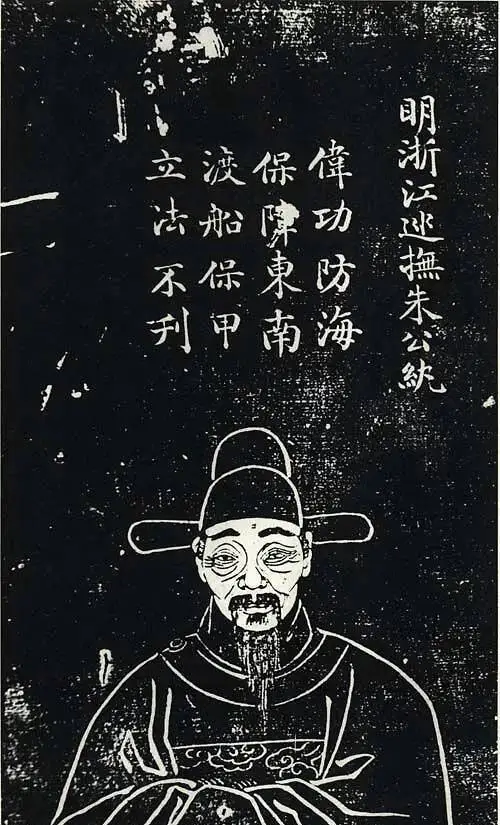 明浙江廵撫朱公紈
偉功防海
保障東南
渡船保甲
立法不刋